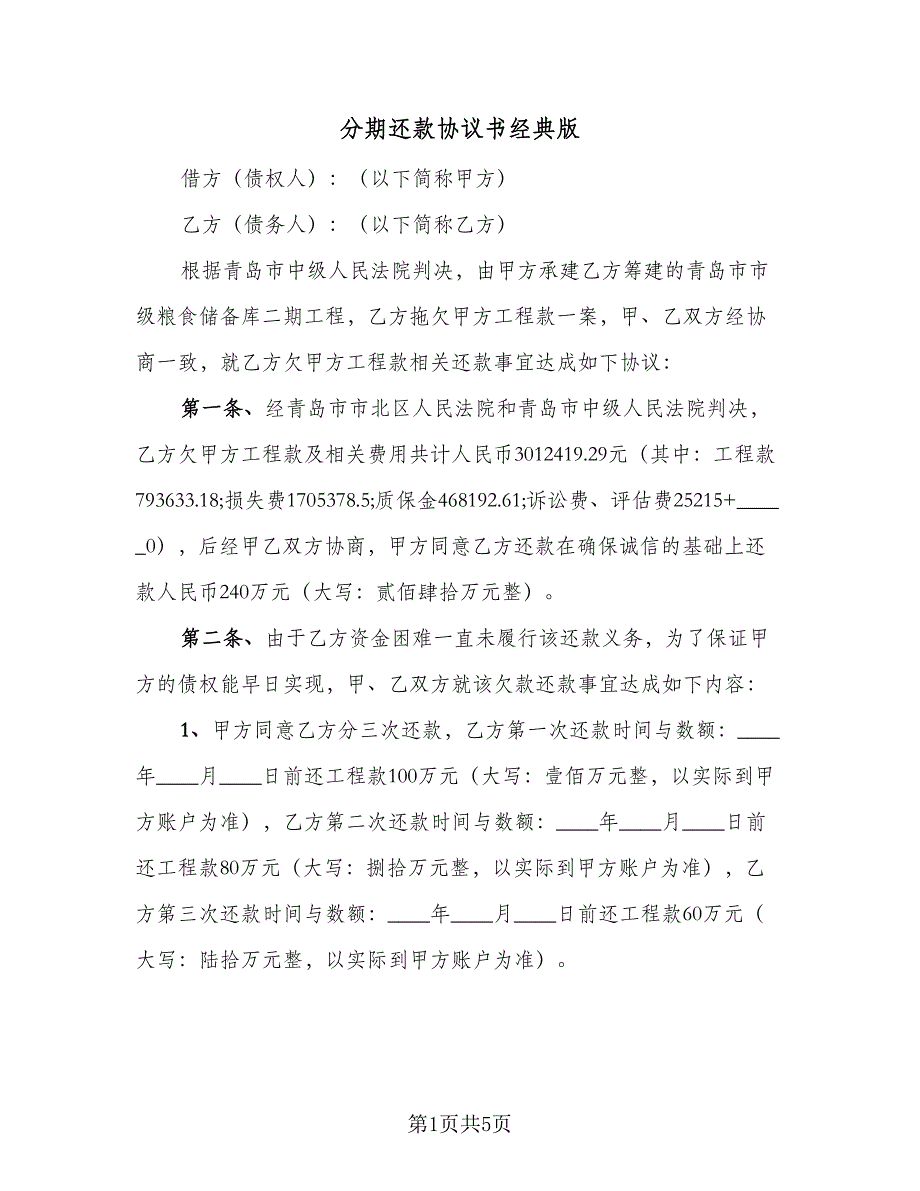 分期还款协议书经典版
借方（债权人）：（以下简称甲方）
乙方（债务人）：（以下简称乙方）
根据青岛市中级人民法院判决，由甲方承建乙方筹建的青岛市市
级粮食储备库二期工程，乙方拖欠甲方工程款一案，甲、乙双方经协
商一致，就乙方欠甲方工程款相关还款事宜达成如下协议：
第一条、经青岛市市北区人民法院和青岛市中级人民法院判决，
乙方欠甲方工程款及相关费用共计人民币3012419.29元（其中：工程款
793633.18;损失费1705378.5;质保金468192.61;诉讼费、评估费25215+____
_0），后经甲乙双方协商，甲方同意乙方还款在确保诚信的基础上还
款人民币240万元（大写：贰佰肆拾万元整）。
第二条、由于乙方资金困难一直未履行该还款义务，为了保证甲
方的债权能早日实现，甲、乙双方就该欠款还款事宜达成如下内容：
1、甲方同意乙方分三次还款，乙方第一次还款时间与数额：____
年____月____日前还工程款100万元（大写：壹佰万元整，以实际到甲
方账户为准），乙方第二次还款时间与数额：____年____月____日前
还工程款80万元（大写：捌拾万元整，以实际到甲方账户为准），乙
方第三次还款时间与数额：____年____月____日前还工程款60万元（
大写：陆拾万元整，以实际到甲方账户为准）。
第1页共5页